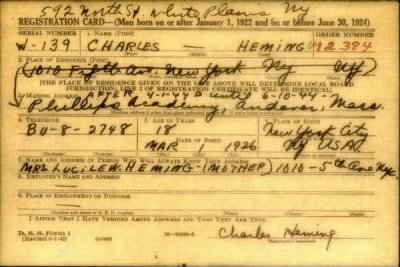 592 North St. White Plains Ny
REGISTRATION CARD—(Men born on or after January 1, 1922 and on or before June 30, 1924)
SERIAL NUMBER 1. NAME (Print) ORDER NUMBER
W-139 CHARLES — HEMING 12384
2. PLACE OF RESIDENCE (Print)
(1010 Fifth Ave New York Ny NY)
[THE PLACE OF RESIDENCE GIVEN ON THE LINE ABOVE WILL DETERMINE LOCAL BOARD
JURISDICTION; LINE 2 OF REGISTRATION CERTIFICATE WILL BE IDENTICAL]
3. MAILING ADDRESS AFTER 4-4-44 until 6-10-44
Phillips Academy, Andover, Mass.
4. TELEPHONE 5. AGE IN YEARS 6. PLACE OF BIRTH
BU-8-2748 18 New York City
DATE OF BIRTH
MAR 1 1926 NY USA
7. NAME AND ADDRESS OF PERSON WHO WILL ALWAYS KNOW YOUR ADDRESS
MRS. LUCILE W. HEMING (MOTHER) 1010-5th Ave NYC
8. EMPLOYER'S NAME AND ADDRESS
9. PLACE OF EMPLOYMENT OR BUSINESS
I AFFIRM THAT I HAVE VERIFIED ABOVE ANSWERS AND THAT THEY ARE TRUE.
D. S. S. Form 1
(Revised 6-1-42) (over) Charles Heming
(Registrant's signature)